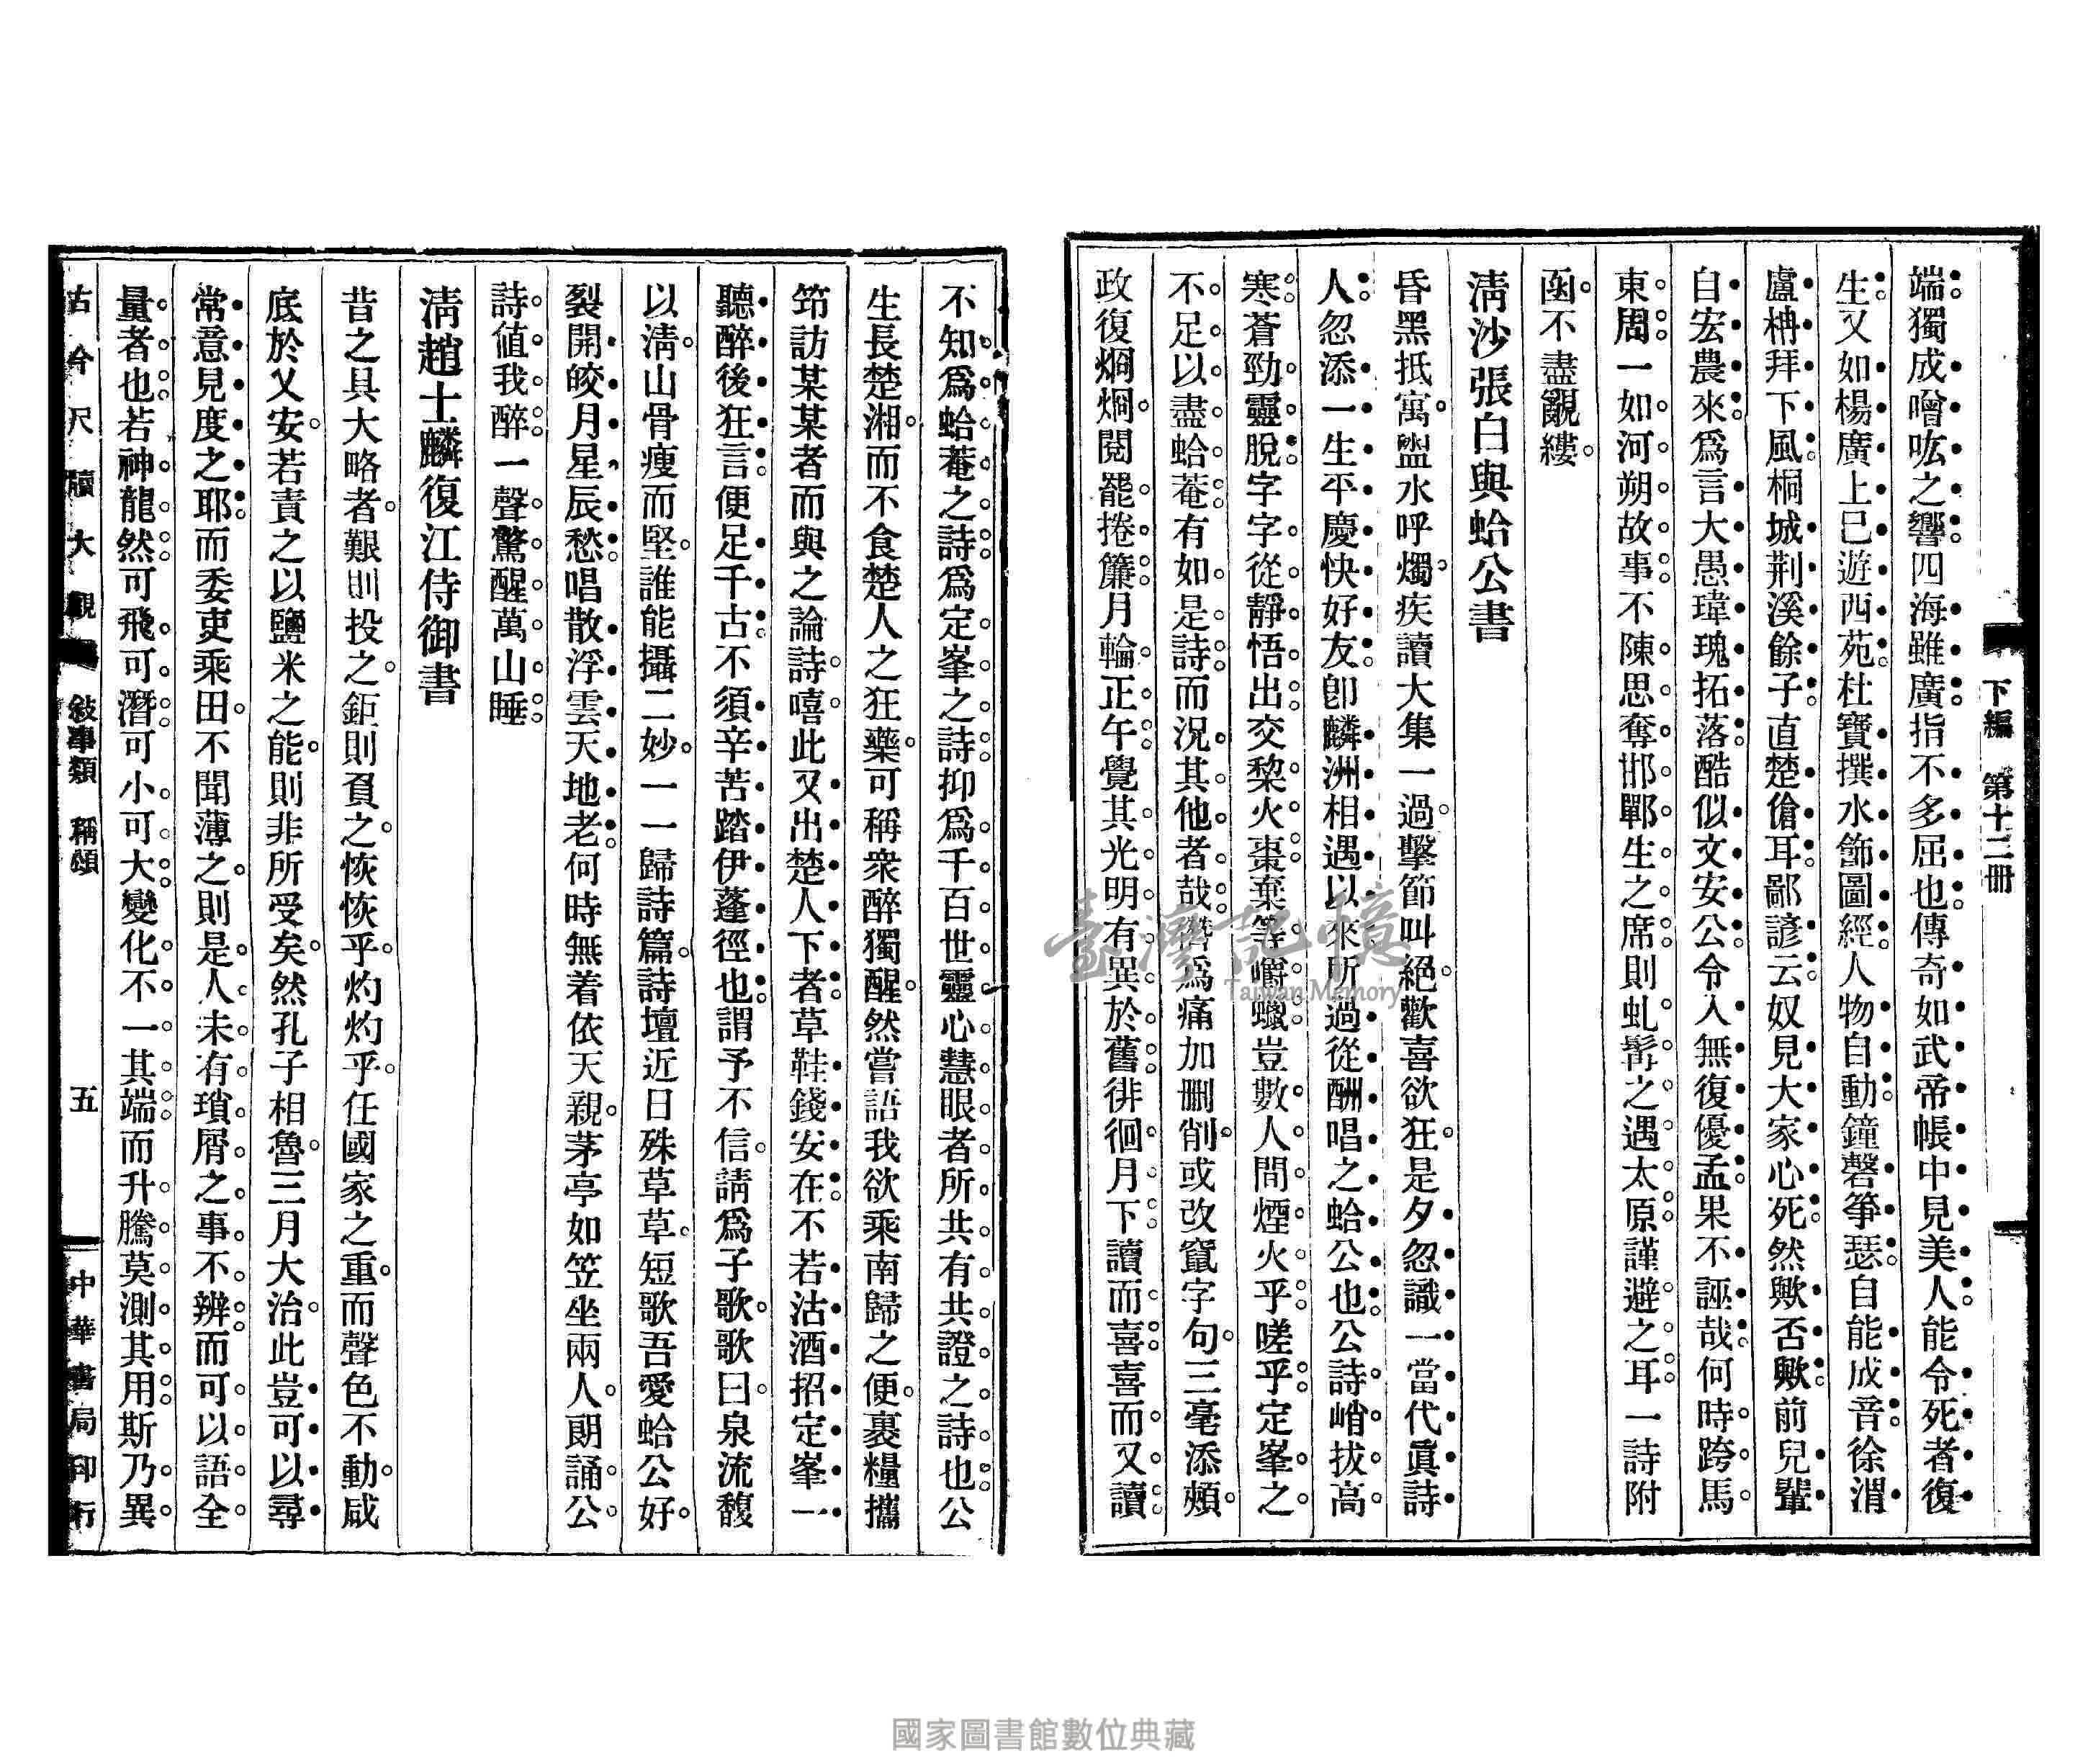 下編　第十二冊
端獨成噲吰之響四海雖廣指不多屈也傳奇如武帝帳中見美人能令死者復
生又如楊廣上巳遊西苑杜寶撰水飾圖經人物自動鐘磬箏瑟自能成音徐渭
盧柟拜下風桐城荆溪餘子直楚傖耳鄙諺云奴見大家心死然歟否歟前兒輩
自宏農來爲言大愚瑋瑰拓落酷似文安公令入無復優孟果不誣哉何時跨馬
東周一如河朔故事不陳思奪邯鄲生之席則虬髯之遇太原謹避之耳一詩附
函不盡覼縷
淸沙張白與蛤公書
昏黑抵寓盥水呼燭疾讀大集一過擊節叫絕歡喜欲狂是夕忽識一當代眞詩
人忽添一生平慶快好友卽麟洲相遇以來所過從酬唱之蛤公也公詩峭拔高
寒蒼勁靈脫字字從靜悟出交棃火棗棄等嚼蠟豈數人間煙火乎嗟乎定峯之
不足以盡蛤菴有如是詩而況其他者哉僭爲痛加删削或改竄字句三毫添頰
政復烱烱閱罷捲簾月輪正午覺其光明有異於舊徘徊月下讀而喜喜而又讀
不知爲蛤菴之詩爲定峯之詩抑爲千百世靈心慧眼者所共有共證之詩也公
生長楚湘而不食楚人之狂藥可稱衆醉獨醒然嘗語我欲乘南歸之便裹糧攜
笻訪某某者而與之論詩嘻此又出楚人下者草鞋錢安在不若沽酒招定峯一
聽醉後狂言便足千古不須辛苦踏伊蓬徑也謂予不信請爲子歌歌曰泉流馥
以淸山骨瘦而堅誰能攝二妙一一歸詩篇詩壇近日殊草草短歌吾愛蛤公好
裂開皎月星辰愁唱散浮雲天地老何時無着依天親茅亭如笠坐兩人朗誦公
詩値我醉一聲驚醒萬山睡
淸趙士麟復江侍御書
昔之具大略者艱則投之鉅則負之恢恢乎灼灼乎任國家之重而聲色不動咸
底於乂安若責之以鹽米之能則非所受矣然孔子相魯三月大治此豈可以尋
常意見度之耶而委吏乘田不聞薄之則是人未有瑣屑之事不辨而可以語全
量者也若神龍然可飛可潛可小可大變化不一其端而升騰莫測其用斯乃異
古今尺牘大觀　敍事類　稱頌　五　中華書局印行
臺灣記憶
Taiwan Memory
國家圖書館數位典藏